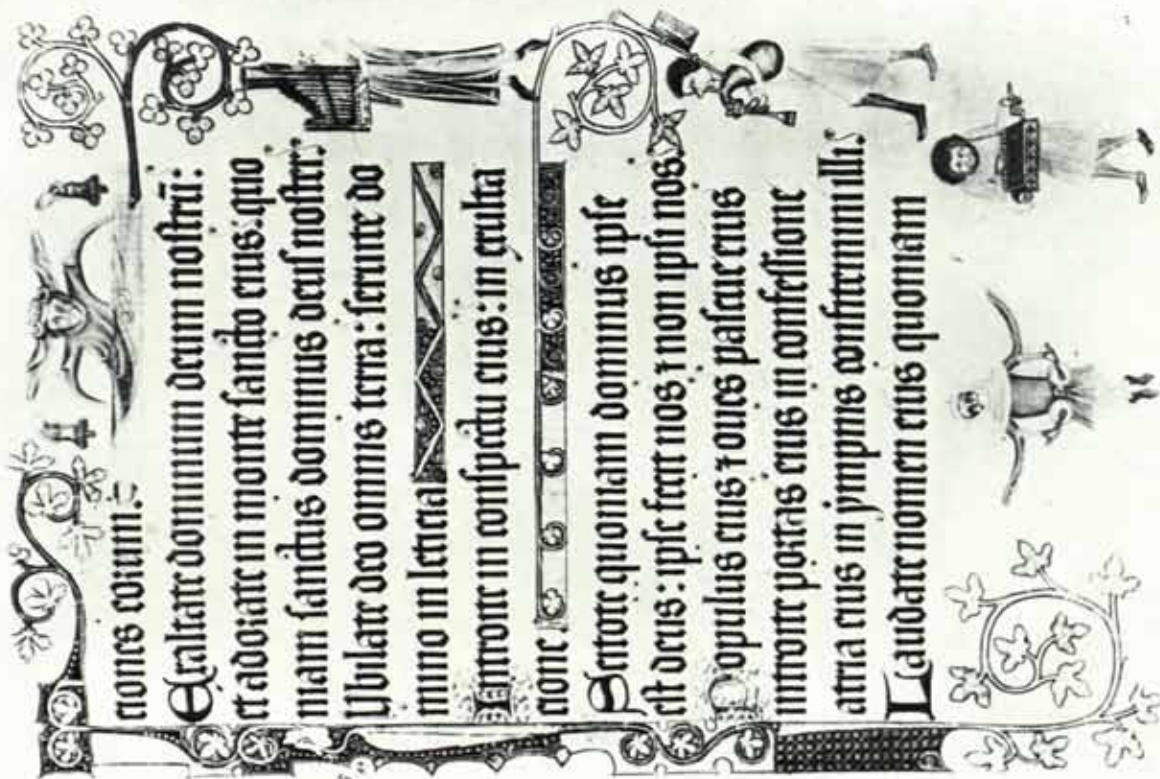 ciones eorum.
Exaltate dominum deum nostrū:
et adorate in monte sancto eius: quo
niam sanctus dominus deus noster:
Ubilate deo omnis terra: seruite do
mino in leticia
Introite in conspectu eius: in exulta
cione.
Scitote quoniam dominus ipse
est deus: ipse fecit nos ⁊ non ipsi nos.
Populus eius ⁊ oues pascue eius
introite portas eius in confessione
atria eius in ympnis confitemini illi.
Laudate nomen eius quoniam